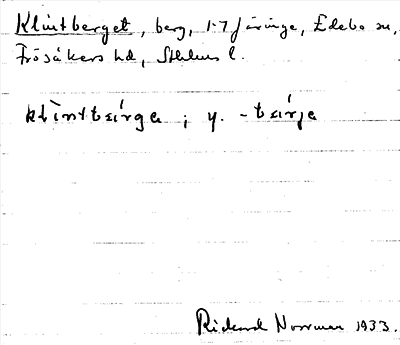 Klintberget, berg, 1-7 Järinge, Edebo sn,
Frösåkers hd, Sthlms l.
klin̄tbärga ; y. -bärja
Rickard Norrman 1933.